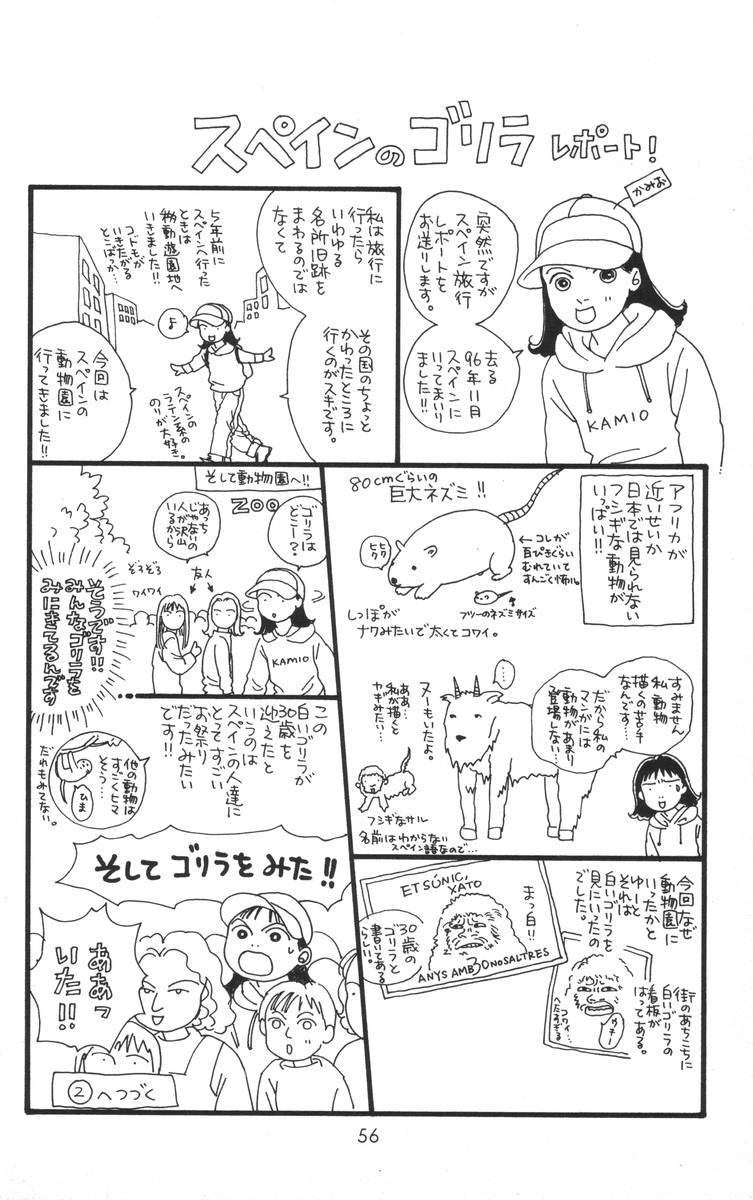 スペインのゴリラ レポート!
かみお
突然ですが
スペイン旅行
レポートを
お送りします。
去る
96年11月
スペインに
いってまいり
ました!!
KAMIO
私は旅行に
行ったら
いわゆる
名所旧跡を
まわるのでは
なくて
その国のちょっと
かわったところに
行くのがスキです。
5年前に
スペインへ行った
ときは
移動遊園地へ
いきました!!
コドモが
いきたがる
とこばっか…
よ
スペインの
ラテン系の
のりが大好き。
今回は
スペインの
動物園に
行ってきました!!
アフリカが
近いせいか
日本では見られない
フシギな動物が
いっぱい!!
80cmぐらいの
巨大ネズミ!!
ヒク
ヒク
←コレが
百ぴきぐらい
むれていて
すんごく怖い。
フツーのネズミサイズ
しっぽが
ナワみたいで太くてコワイ。
すみません
私、動物
描くの苦手
なんです…
だから私の
マンガには
動物があまり
登場しない…
…
ヌーもいたよ。
ああ…
私が描くと
ヤギみたい…
フシギなサル
名前はわからない
スペイン語なので…
そして動物園へ!!
ZOO
ゴリラは
どこー?
あっち
じゃないの
人が沢山
いるから
友人
ぞろぞろ
ワイワイ
KAMIO
そうです!!
みんなゴリラを
みにきてるんです
この
白いゴリラが
30歳を
迎えたと
いうのは
スペインの人達に
とってすごい
お祭り
だったみたい
です!!
他の動物は
すごくヒマ
そう…
ひま
だれもみてない。
今回なぜ
動物園に
いったかと
ゆーと
それは
白いゴリラを
見にいったの
でした。
ET SÚNIC,
XATO
まっ白!!
ANYS AMB 30 NOSALTRES
30歳の
ゴリラと
書いてある
らしい。
街のあちこちに
白いゴリラの
看板が
はってある。
ウホー
コワイ…
へたすぎる
そして ゴリラを みた!!
ああっ
いた!!
②へつづく
56